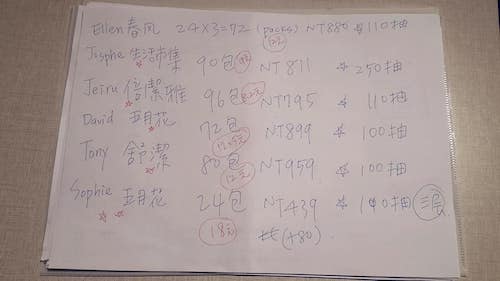 Ellen 春风 24×3=72 (packs) NT880 * 110抽
12.2
Jisphe 生活市集 90包 NT811 * 250抽
Jeiru 倍潔雅 96包 NT795 * 110抽
David 五月花 72包 NT899 * 100抽
Tony 舒潔 80包 NT959 * 100抽
12元
Sophie 五月花 24包 NT439 * 100抽 三层
18元 (+80)